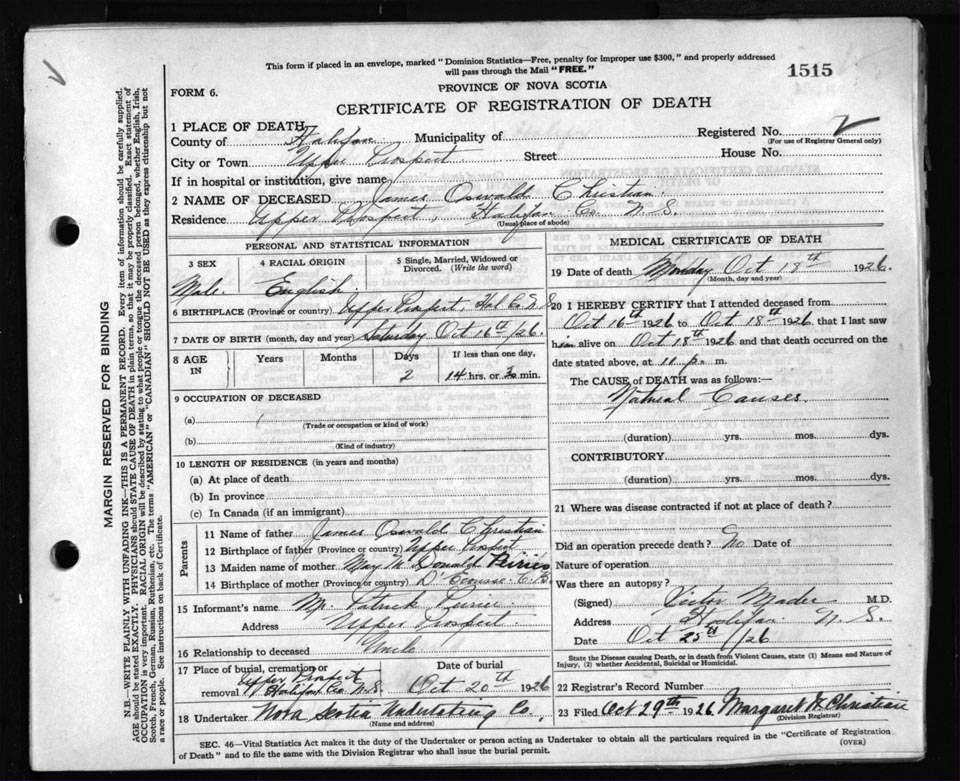 This form if placed in an envelope, marked "Dominion Statistics—Free, penalty for improper use $300," and properly addressed
will pass through the Mail "FREE."
1515
PROVINCE OF NOVA SCOTIA
FORM 6.
CERTIFICATE OF REGISTRATION OF DEATH
1 PLACE OF DEATH
County of Halifax Municipality of
Registered No. 2
(For use of Registrar General only)
City or Town Upper Prospect Street House No.
If in hospital or institution, give name
2 NAME OF DECEASED James Oswald Christian.
Residence Upper Prospect, Halifax Co. N.S.
(Usual place of abode)
PERSONAL AND STATISTICAL INFORMATION
3 SEX 4 RACIAL ORIGIN 5 Single, Married, Widowed or
Divorced. (Write the word)
Male. English
6 BIRTHPLACE (Province or country) Upper Prospect, Hal. Co. N.S.
7 DATE OF BIRTH (month, day and year) Saturday Oct 16th/26.
8 AGE IN Years Months Days If less than one day,
2 14 hrs. or min.
9 OCCUPATION OF DECEASED
(a)
(Trade or occupation or kind of work)
(b)
(Kind of industry)
10 LENGTH OF RESIDENCE (in years and months)
(a) At place of death
(b) In province
(c) In Canada (if an immigrant)
Parents
11 Name of father James Oswald Christian
12 Birthplace of father (Province or country) Upper Prospect
13 Maiden name of mother May M. Donald
14 Birthplace of mother (Province or country) D'Ecousse C.B.
15 Informant's name Mr. Patrick
Address Upper Prospect.
16 Relationship to deceased Uncle
17 Place of burial, cremation or removal Upper Prospect Halifax Co. N.S.
Date of burial Oct 20th 1926
18 Undertaker Nova Scotia Undertaking Co.,
(Name and address)
MEDICAL CERTIFICATE OF DEATH
19 Date of death Monday Oct 18th 1926.
(Month, day and year)
20 I HEREBY CERTIFY that I attended deceased from
Oct 16th 1926 to Oct 18th 1926, that I last saw
him alive on Oct 18th 1926 and that death occurred on the
date stated above, at 11 p. m.
The CAUSE of DEATH was as follows:—
Natural Causes.
(duration) yrs. mos. dys.
CONTRIBUTORY
(duration) yrs. mos. dys.
21 Where was disease contracted if not at place of death?
Did an operation precede death? No Date of
Nature of operation
Was there an autopsy?
(Signed) Victor Mader M.D.
Address Halifax N.S.
Date Oct 25th/26
State the Disease causing Death, or in death from Violent Causes, state (1) Means and Nature of
Injury, (2) whether Accidental, Suicidal or Homicidal.
22 Registrar's Record Number
23 Filed Oct 29th 1926. Margaret Christian
(Division Registrar)
SEC. 46—Vital Statistics Act makes it the duty of the Undertaker or person acting as Undertaker to obtain all the particulars required in the "Certificate of Registration
of Death" and to file the same with the Division Registrar who shall issue the burial permit.
(OVER)
MARGIN RESERVED FOR BINDING
N.B.—WRITE PLAINLY WITH UNFADING INK—THIS IS A PERMANENT RECORD. Every item of information should be carefully supplied.
AGE should be stated EXACTLY. PHYSICIANS should STATE CAUSE OF DEATH in plain terms, so that it may be properly classified. Exact statement of
OCCUPATION is very important. RACIAL ORIGIN will be described by stating to what people or tongue the deceased person belonged, whether English, Irish,
Scotch, French, German, Russian, Ruthenian, etc. The terms "AMERICAN" or "CANADIAN" SHOULD NOT BE USED as they express citizenship but not
a race or people. See instructions on back of Certificate.